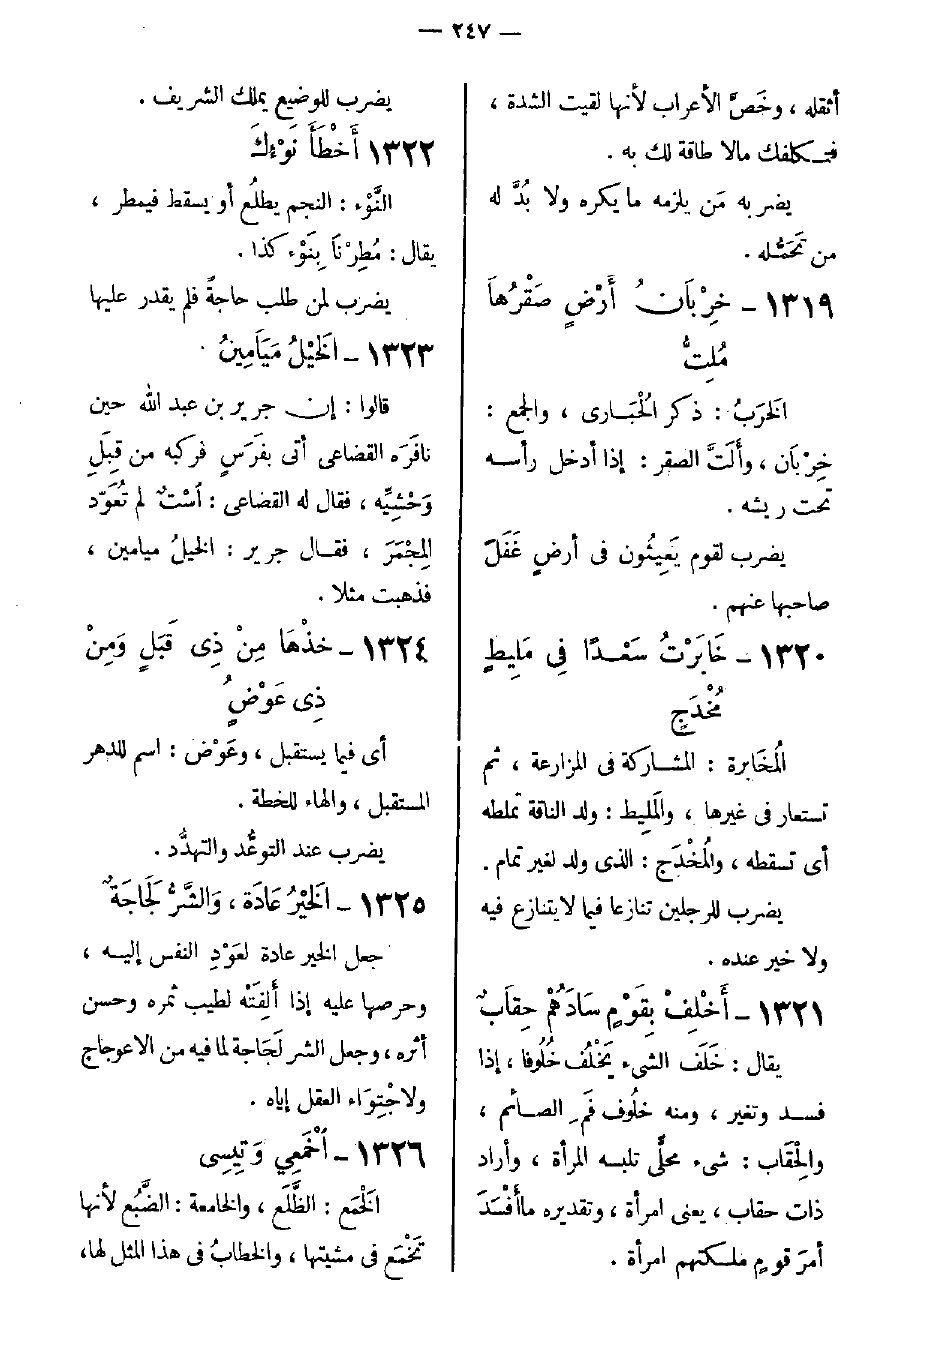 — ٢٤٧ —
أثقله ، وخَصَّ الأعراب لأنها لقيت الشدة ،
فتكلفك مالا طاقة لك به .
يضربه مَن يلزمه ما يكره ولا بُدَّ له
من تَحَمُّله .
١٣١٩ – خِرْبَانُ أَرْضٍ صَقْرُهَا
مُلِتٌّ
الخَرَبُ : ذكر الْحُبَارى ، والجمع :
خِرْبَان ، وأَلَتَّ الصقر : إذا أدخل رأسه
تحت ريشه .
يضرب لقوم يَعِيثُون فى أرضٍ غَفَلَ
صاحبها عنهم .
١٣٢٠ – خَابَرْتُ سَعْدًا فِى مَلِيطٍ
مُخْدَجٍ
الْمُخَابرة : المشاركة فى المزارعة ، ثم
تستعار فى غيرها ، والْمَلِيط : ولد الناقة تملطه
أى تسقطه ، والْمُخْدَج : الذى ولد لغير تمام .
يضرب للرجلين تنازعا فيما لا يتنازع فيه
ولا خير عنده .
١٣٢١ – أَخْلِفْ بِقَوْمٍ سَادَهُمْ حِقَابٌ
يقال : خَلَف الشىء يَخْلُف خُلُوفا ، إذا
فسد وتغير ، ومنه خلُوف فَمِ الصائم ،
والْحِقَاب : شىء محلَّى تلبسه المرأة ، وأراد
ذات حقاب ، يعنى امرأة ، وتقديره ما أَفْسَدَ
أمرَ قومٍ ملكتهم امرأة .
يضرب للوضيع يملك الشريف .
١٣٢٢ أَخْطَأَ نَوْءُكَ
النَّوْء : النجم يطلُع أو يسقط فيمطر ،
يقال : مُطِرْنَا بِنَوْء كذا .
يضرب لمن طلب حاجةً فلم يقدر عليها
١٣٢٣ – الْخَيْلُ مَيَامِينُ
قالوا : إن جرير بن عبد الله حين
نافَرَه القضاعى أتى بفَرَسٍ فركبه من قِبَلِ
وَحْشِيِّه ، فقال له القضاعى : اَسْتٌ لم تُعَوَّد
المِجْمَرَ ، فقال جرير : الخيلُ ميامين ،
فذهبت مثلا .
١٣٢٤ – خذْهَا مِنْ ذِى قَبَلٍ وَمِنْ
ذِى عَوْضُ
أى فيما يستقبل ، وعَوْضُ : اسم للدهر
المستقبل ، والهاء للخطة .
يضرب عند التوعُّد والتهدُّد .
١٣٢٥ – الْخَيْرُ عَادَة ، وَالشَّرُّ لَجَاجَةٌ
جعل الخير عادة لعَوْدِ النفس إليه ،
وحرصها عليه إذا أَلِفَتْه لطيب ثمره وحسن
أثره ، وجعل الشر لَجَاجة لما فيه من الاعوجاج
ولاجْتِوَاء العقل إياه .
١٣٢٦ – اُخْمَعِى وَتِيسِى
الْخَمْع : الظَّلَع ، والخامعة : الضَّبُع لأنها
تَخْمَع فى مشيتها ، والخطابُ فى هذا المثل لها،